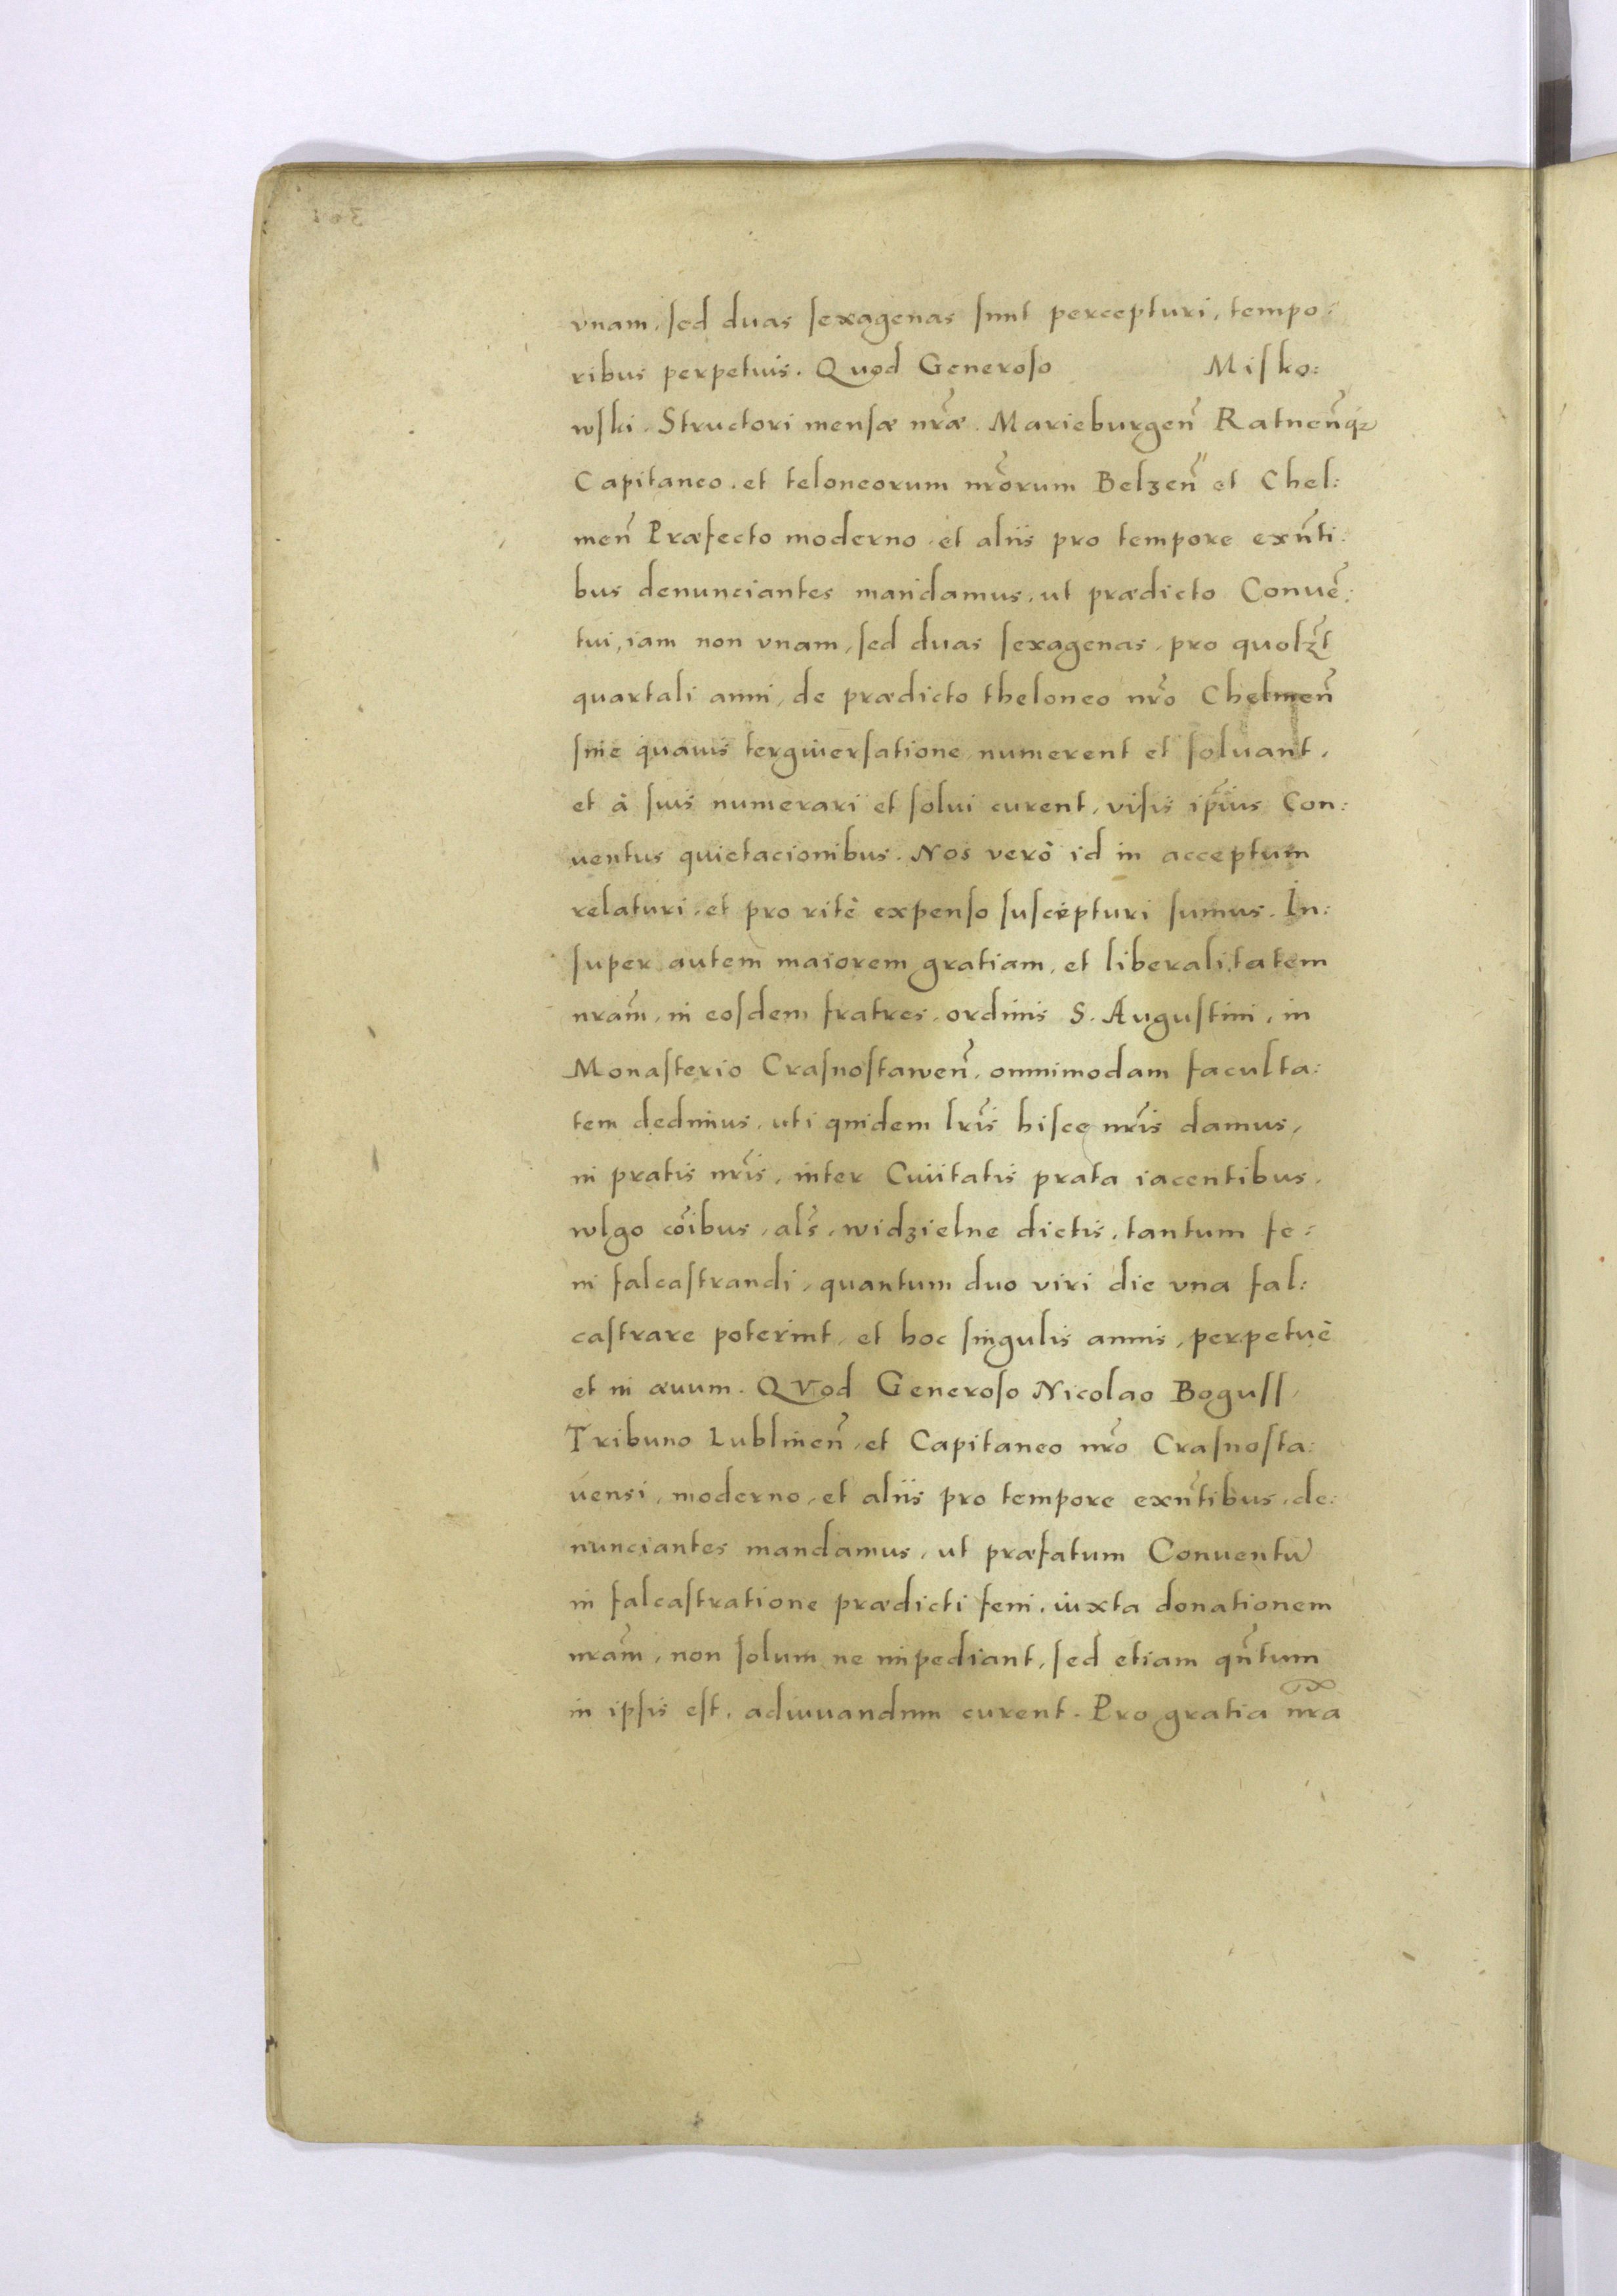 vnam, sed duas sexagenas sunt percepturi, tempo:
ribus perpetuis. Quod Generoso Misko:
wski. Structori mensæ nr̃æ. Marieburgen̄ Ratnen̄q̢
Capitaneo. et teloneorum nr̃orum Belzen̄ et Chel:
men̄ Præfecto moderno. et aliis pro tempore exn̄ti:
bus denunciantes mandamus. ut prædicto Conuē:
tui, iam non vnam, sed duas sexagenas, pro quolꝫt
quartali anni, de prædicto theloneo nr̃o Chelmen̄
sine quauis tergiuersatione numerent et soluant,
et à suis numerari et solui curent, visis ip̄ius Con:
uentus quietacionibus. Nos verò id in acceptum
relaturi, et pro ritè expenso suscepturi sumus. In:
super autem maiorem gratiam, et liberalitatem
nram̃, in eosdem fratres, ordinis S. Augustini, in
Monasterio Crasnostawen̄, omnimodam faculta:
tem dedimus, uti quidem lr̃is hisce nr̃is damus,
in pratis nr̃is, inter Ciuitatis prata iacentibus,
wlgo cōibus, als̃, widzielne dictis, tantum fe:
ni falcastrandi, quantum duo viri die vna fal:
castrare poterint, et hoc singulis annis, perpetuè
et in æuum. QVod Generoso Nicolao Boguss,
Tribuno Lublinen̄, et Capitaneo nr̃o Crasnosta:
uensi, moderno, et aliis pro tempore exn̄tibus, de:
nunciantes mandamus, ut præfatum Conuentū
in falcastratione prædicti feni, iuxta donationem
nram̃, non solum ne impediant, sed etiam qn̄tum
in ipsis est, adiuuandum curent. Pro gratia nr̃a
301